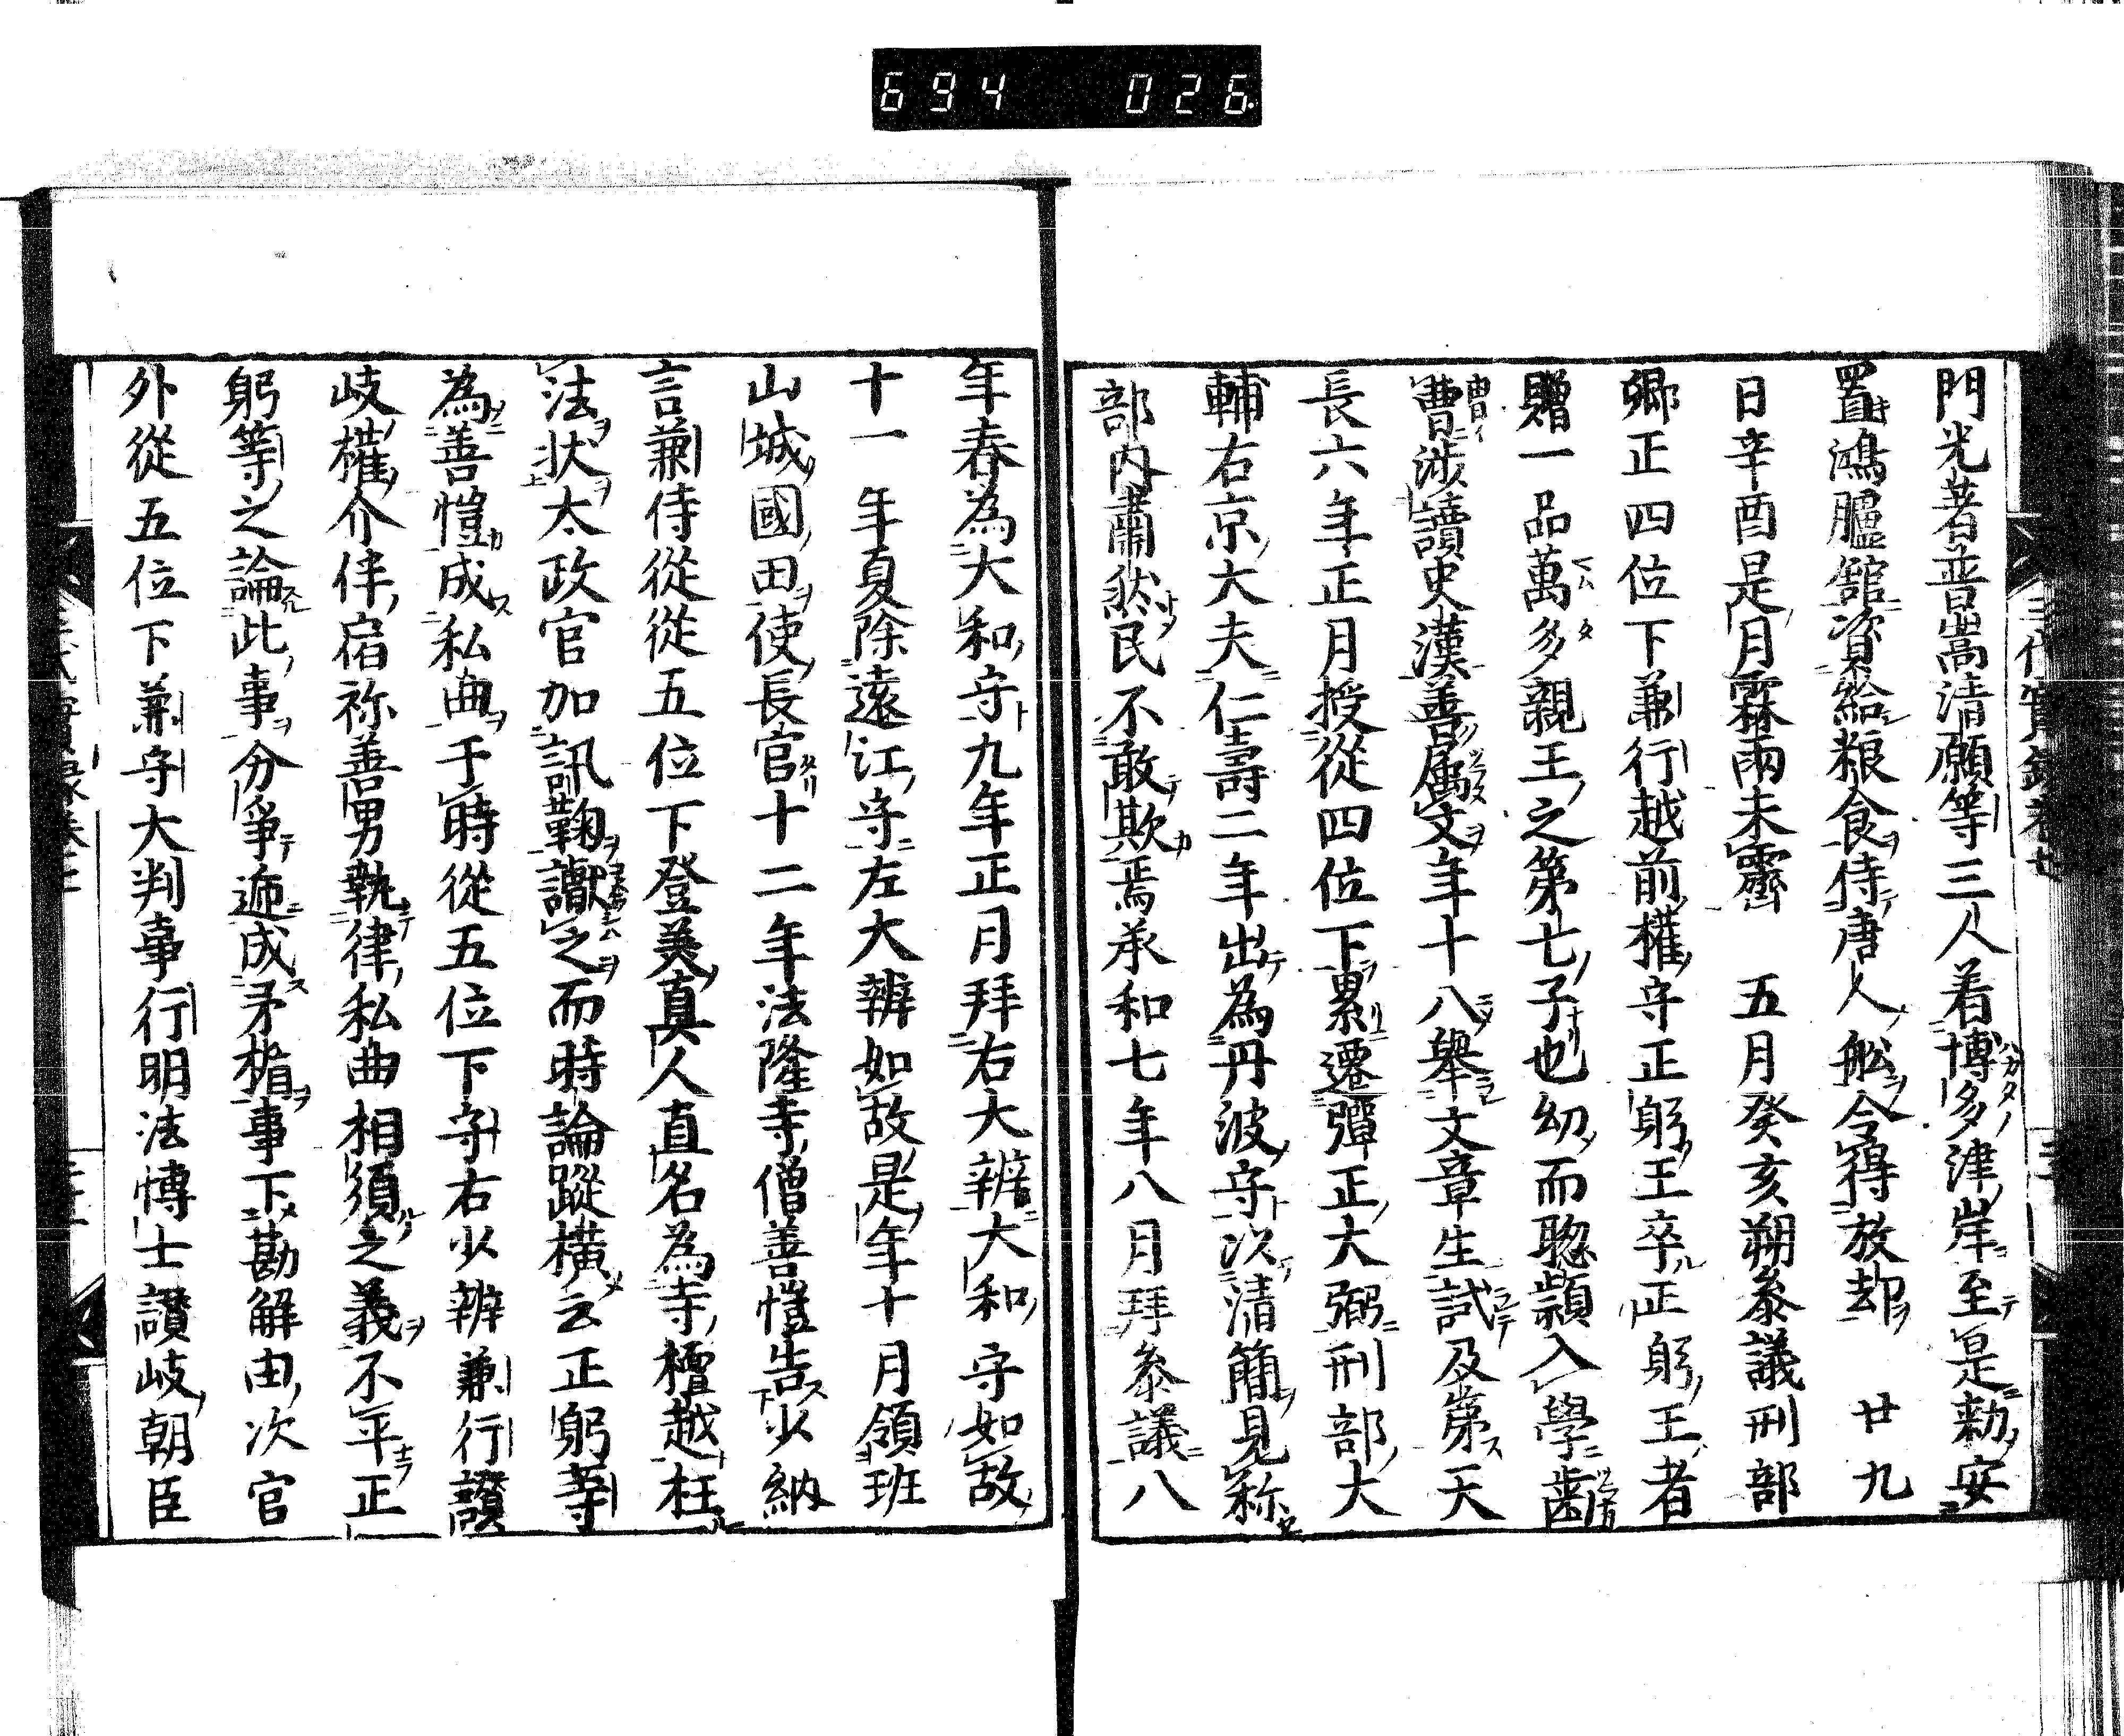 694 026
門光著普嵩清願等三人着博多津岸至是勅安
置鴻臚舘資給粮食侍唐人舩令得放却 廿九
日辛酉是月霖雨未霽 五月癸亥朔叅議刑部
卿正四位下兼行越前權守正躬王卒正躬王者
贈一品萬多親王之第七子也幼而聡頴入學齒
曹渉讀史漢善属文年十八舉文章生試及第天
長六年正月授從四位下累遷彈正大弼刑部大
輔右京大夫仁壽二年出為丹波守次清簡見称
部内肅然民不敢欺焉承和七年八月拜叅議八
年春為大和守九年正月拜右大辨大和守如故
十一年夏除遠江守左大辨如故是年十月領班
山城國田使長官十二年法隆寺僧善愷告少納
言兼侍從從五位下登美真人直名為寺檀越枉
法状太政官加訊鞠讞之而時論蹤横云正躬等
為善愷成私曲于時從五位下守右少辨兼行讃
岐權介伴宿祢善男執律私曲相須之義不平正
躬等之論此事分爭遞成矛楯事下勘解由次官
外從五位下兼守大判事行明法博士讃岐朝臣